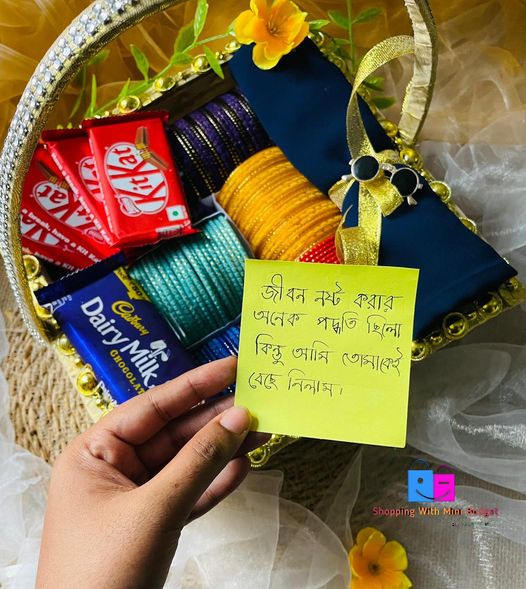 KitKat
Nestle
KitKat
Cadbury
Dairy Milk
CHOCOLATE
জীবন নষ্ট করার
অনেক পদ্ধতি ছিলো
কিন্তু আমি তোমাকেই
বেছে নিলাম।
Shopping With Mini Budget